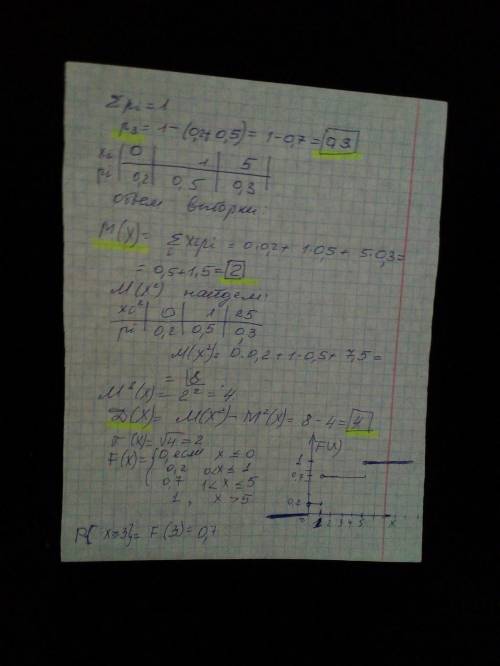 Σpi = 1
p3 = 1 - (0,2+0,5) = 1 - 0,7 = 0,3
xi 0 1 5
pi 0,2 0,5 0,3
объем выборки:
M(X) = Σxipi = 0·0,2 + 1·0,5 + 5·0,3 =
= 0,5 + 1,5 = 2
M(X²) найдем:
xi² 0 1 25
pi 0,2 0,5 0,3
M(X²) = 0·0,2 + 1·0,5 + 7,5 =
= 8
M²(X) = 2² = 4
D(X) = M(X²) - M²(X) = 8 - 4 = 4
σ(X) = √4 = 2
F(X) = { 0, если x ≤ 0
0,2 0<x≤1
0,7 1<x≤5
1, x>5
F(x)
1
0,7
0,2
0 1 2 3 4 5 x
P{x<3} = F(3) = 0,7